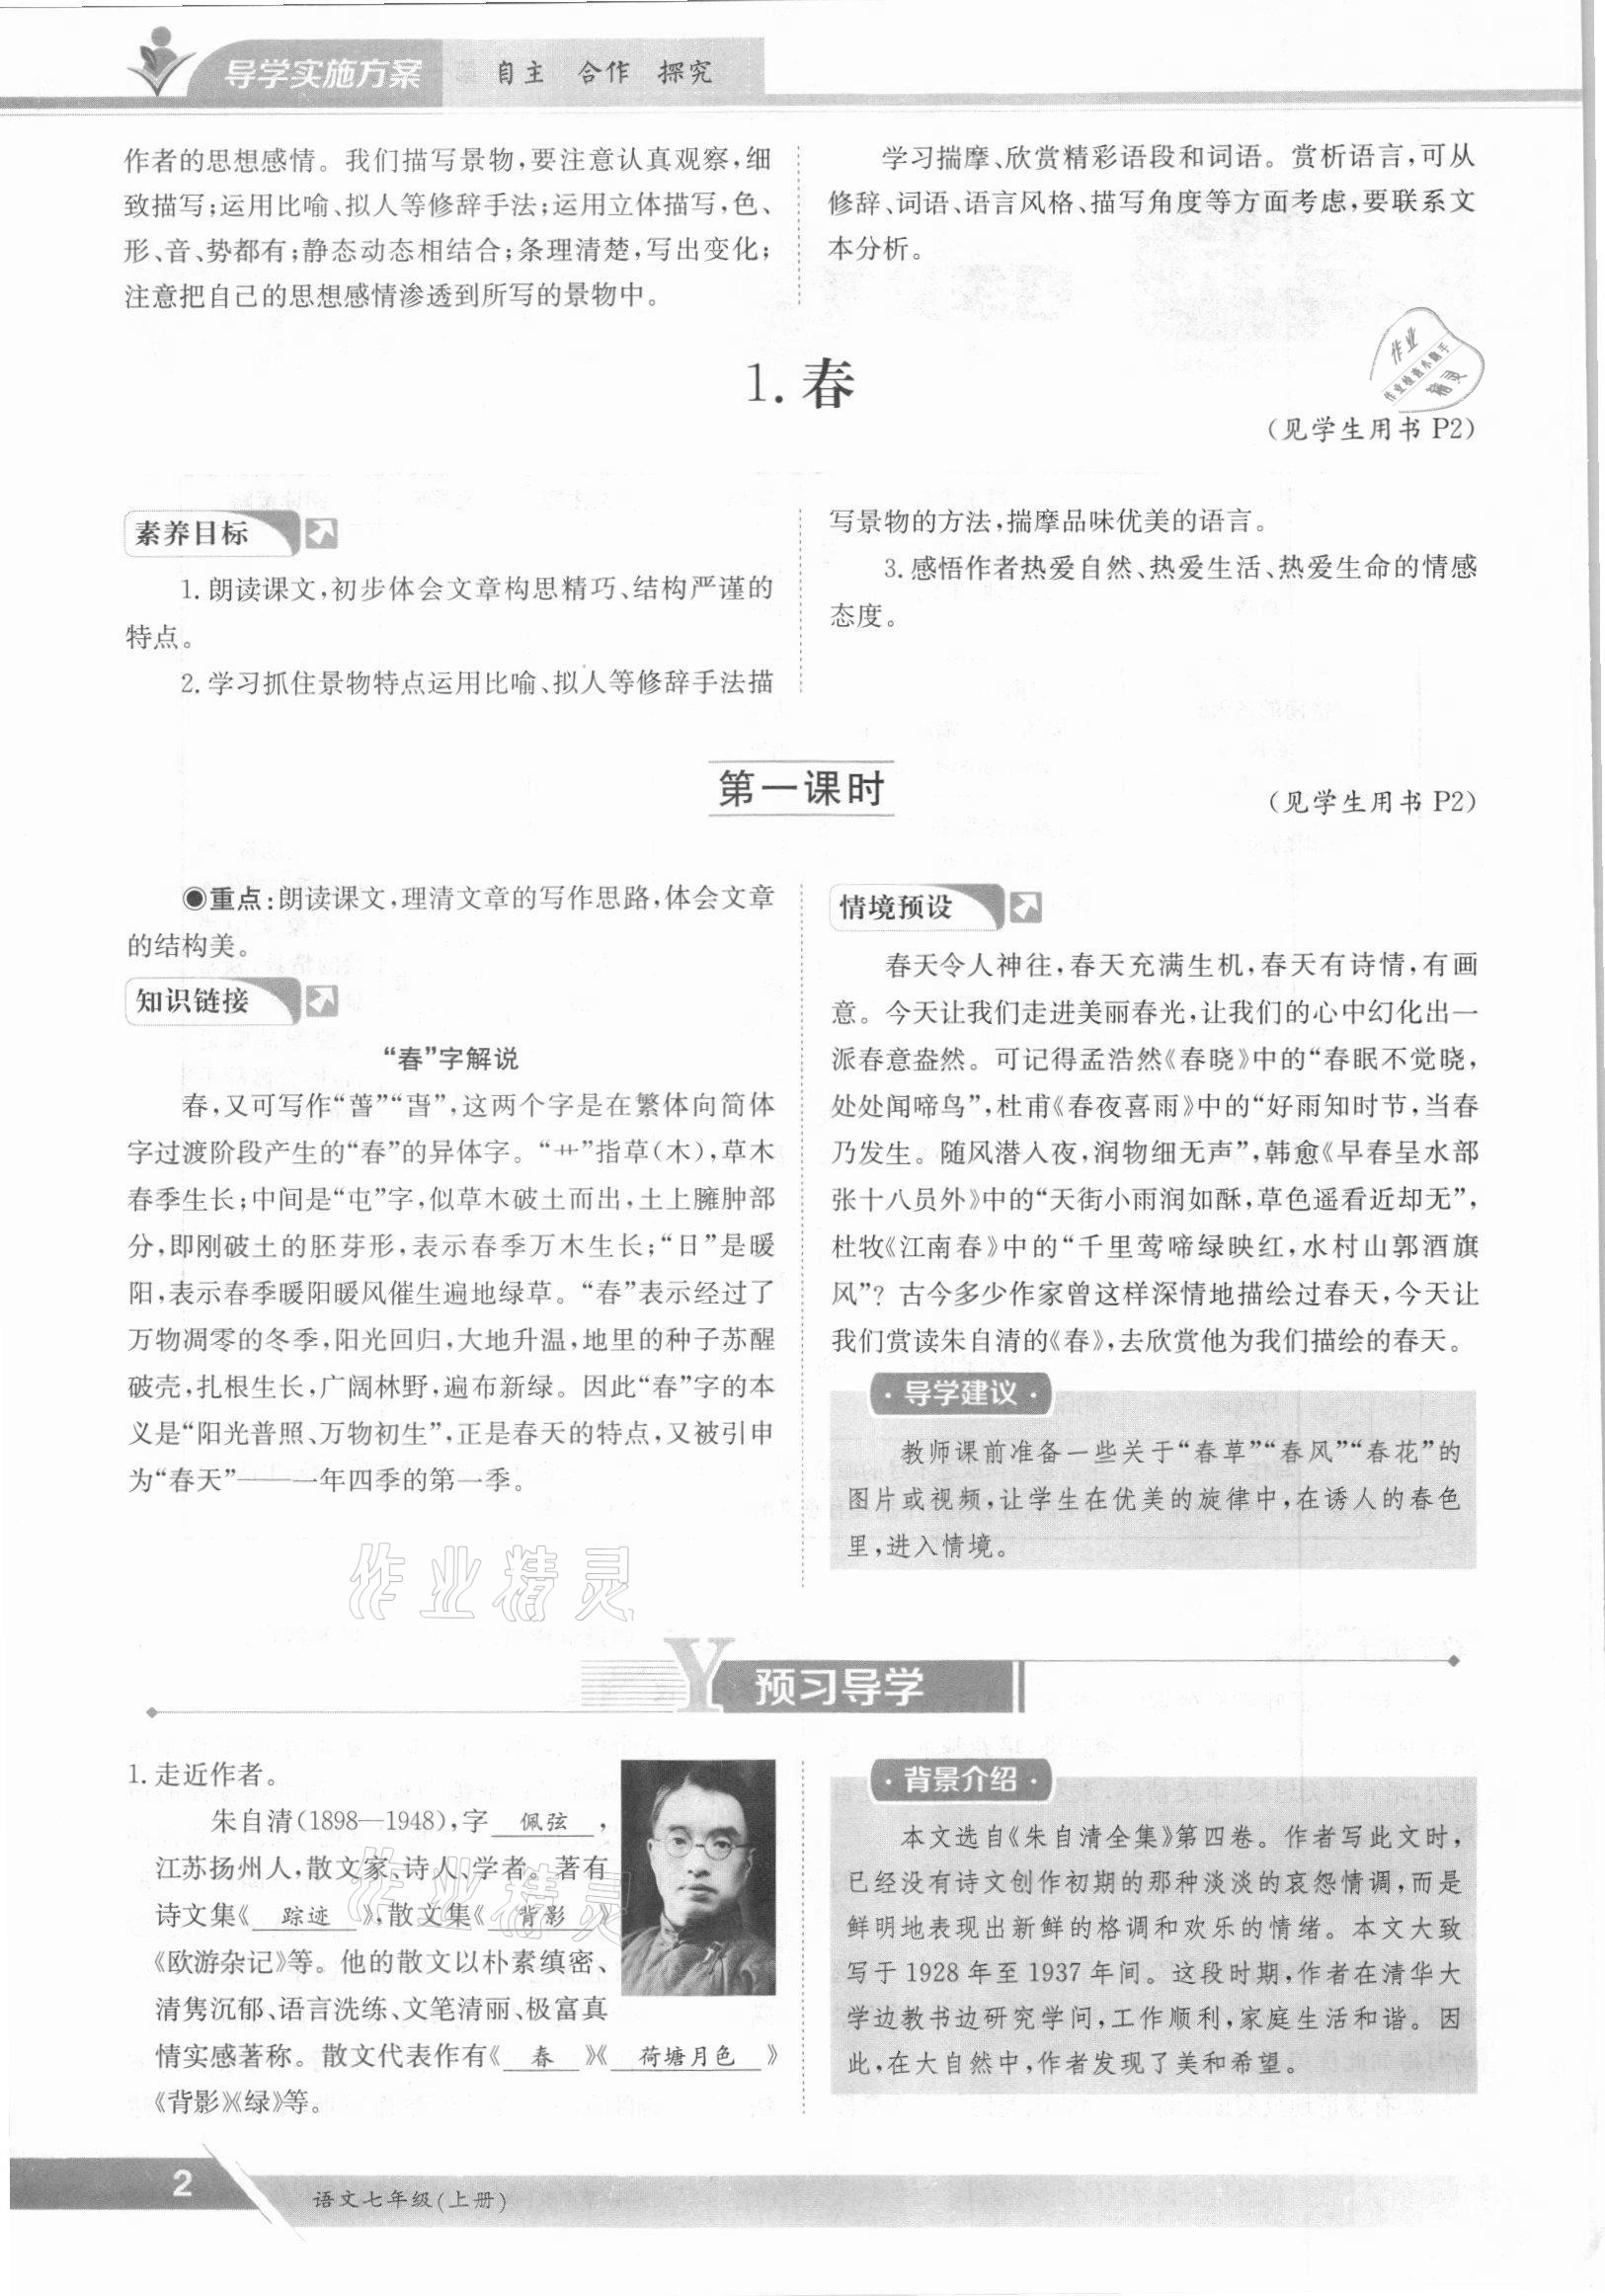 导学实施方案 自主 合作 探究
作者的思想感情。我们描写景物，要注意认真观察，细
致描写；运用比喻、拟人等修辞手法；运用立体描写，色、
形、音、势都有；静态动态相结合；条理清楚，写出变化；
注意把自己的思想感情渗透到所写的景物中。
学习揣摩、欣赏精彩语段和词语。赏析语言，可从
修辞、词语、语言风格、描写角度等方面考虑，要联系文
本分析。
作业
作业检查小助手
精灵
1. 春
（见学生用书 P2）
素养目标
1. 朗读课文，初步体会文章构思精巧、结构严谨的
特点。
2. 学习抓住景物特点运用比喻、拟人等修辞手法描
写景物的方法，揣摩品味优美的语言。
3. 感悟作者热爱自然、热爱生活、热爱生命的情感
态度。
第一课时
（见学生用书 P2）
◉重点：朗读课文，理清文章的写作思路，体会文章
的结构美。
知识链接
“春”字解说
春，又可写作“萅”“旾”，这两个字是在繁体向简体
字过渡阶段产生的“春”的异体字。“艹”指草（木），草木
春季生长；中间是“屯”字，似草木破土而出，土上臃肿部
分，即刚破土的胚芽形，表示春季万木生长；“日”是暖
阳，表示春季暖阳暖风催生遍地绿草。“春”表示经过了
万物凋零的冬季，阳光回归，大地升温，地里的种子苏醒
破壳，扎根生长，广阔林野，遍布新绿。因此“春”字的本
义是“阳光普照、万物初生”，正是春天的特点，又被引申
为“春天”——一年四季的第一季。
情境预设
春天令人神往，春天充满生机，春天有诗情，有画
意。今天让我们走进美丽春光，让我们的心中幻化出一
派春意盎然。可记得孟浩然《春晓》中的“春眠不觉晓，
处处闻啼鸟”，杜甫《春夜喜雨》中的“好雨知时节，当春
乃发生。随风潜入夜，润物细无声”，韩愈《早春呈水部
张十八员外》中的“天街小雨润如酥，草色遥看近却无”，
杜牧《江南春》中的“千里莺啼绿映红，水村山郭酒旗
风”？古今多少作家曾这样深情地描绘过春天，今天让
我们赏读朱自清的《春》，去欣赏他为我们描绘的春天。
·导学建议·
教师课前准备一些关于“春草”“春风”“春花”的
图片或视频，让学生在优美的旋律中，在诱人的春色
里，进入情境。
作业精灵
Y 预习导学
1. 走近作者。
朱自清（1898—1948），字 佩弦 ，
江苏扬州人，散文家、诗人、学者。著有
诗文集《 踪迹 》，散文集《 背影 》
《欧游杂记》等。他的散文以朴素缜密、
清隽沉郁、语言洗练、文笔清丽、极富真
情实感著称。散文代表作有《 春 》《 荷塘月色 》
《背影》《绿》等。
作业精灵
·背景介绍·
本文选自《朱自清全集》第四卷。作者写此文时，
已经没有诗文创作初期的那种淡淡的哀怨情调，而是
鲜明地表现出新鲜的格调和欢乐的情绪。本文大致
写于 1928 年至 1937 年间。这段时期，作者在清华大
学边教书边研究学问，工作顺利，家庭生活和谐。因
此，在大自然中，作者发现了美和希望。
2 语文七年级（上册）